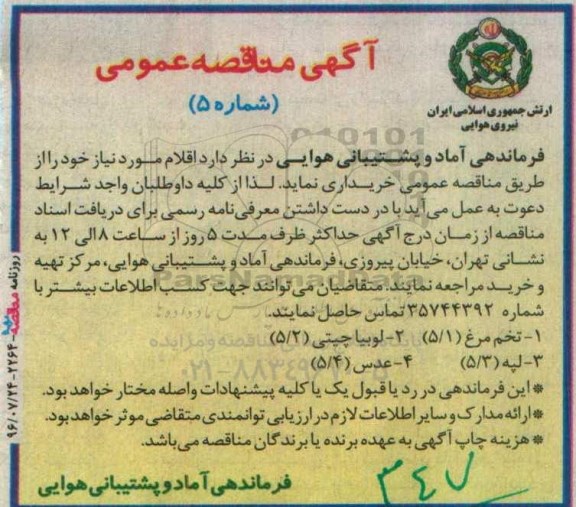 آگهی مناقصه عمومی
(شماره ۵)
ارتش جمهوری اسلامی ایران
نیروی هوایی
فرماندهی آماد و پشتیبانی هوایی در نظر دارد اقلام مورد نیاز خود را از
طریق مناقصه عمومی خریداری نماید. لذا از کلیه داوطلبان واجد شرایط
دعوت به عمل می‌آید با در دست داشتن معرفی‌نامه رسمی برای دریافت اسناد
مناقصه از زمان درج آگهی حداکثر ظرف مدت ۵ روز از ساعت ۸ الی ۱۲ به
نشانی تهران، خیابان پیروزی، فرماندهی آماد و پشتیبانی هوایی، مرکز تهیه
و خرید مراجعه نمایند. متقاضیان می‌توانند جهت کسب اطلاعات بیشتر با
شماره ۳۵۷۴۴۳۹۲ تماس حاصل نمایند.
۱- تخم مرغ (۵/۱) ۲- لوبیا چیتی (۵/۲)
۳- لپه (۵/۳) ۴- عدس (۵/۴)
* این فرماندهی در رد یا قبول یک یا کلیه پیشنهادات واصله مختار خواهد بود.
* ارائه مدارک و سایر اطلاعات لازم در ارزیابی توانمندی متقاضی موثر خواهد بود.
* هزینه چاپ آگهی به عهده برنده یا برندگان مناقصه می‌باشد.
فرماندهی آماد و پشتیبانی هوایی
۳۴۷
روزنامه مناقصه ۲۲۶۴-۹۶/۰۷/۲۴